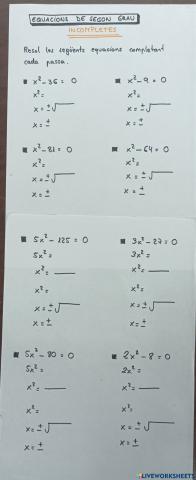 EQUACIONS DE SEGON GRAU
INCOMPLETES
Resol les següents equacions completant
cada passa.
x²-36 = 0
x²=
x = ±√
x = ±
x²-9 = 0
x²=
x = ±√
x = ±
x²-81 = 0
x²=
x = ±√
x = ±
x²-64 = 0
x²=
x = ±√
x = ±
5x²-125 = 0
5x²=
x²= ___
x²=
x = ±√
x = ±
3x²-27 = 0
3x²=
x²= ___
x²=
x = ±√
x = ±
5x²-80 = 0
5x²=
x²= ___
x²=
x = ±√
x = ±
2x²-8 = 0
2x²=
x²= ___
x²=
x = ±√
x = ±
LIVEWORKSHEETS